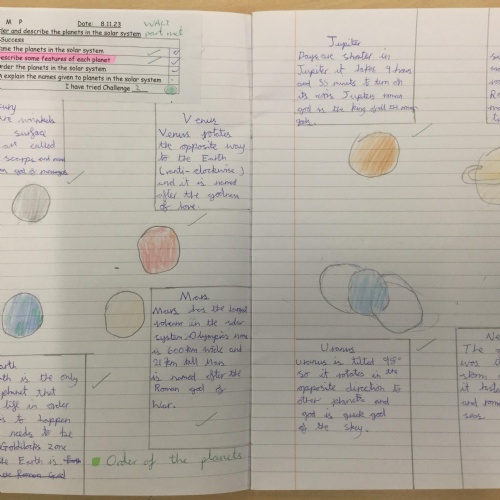 M P Date: 8.11.23
WALT
part met
der and describe the planets in the solar system
Success
ome the planets in the solar system
describe some features of each planet
order the planets in the solar system
explain the names given to planets in the solar system
I have tried Challenge 2
ury
are wrinkels
surface
are called
scarps and
Venus
Venus rotates
the opposite way
to the Earth
(anti-clockwise)
and it is named
after the godness
of love.
Mars
Mars has the largest
in the solar
system. Olympus
is 600km wide and
21 km tall Mars
is named after the
Roman god of
War.
arth
th is the only
planet that
life in order
is to happen
needs to be
Goldilocks zone
Earth is
Roman God
Order of the planets
Jupiter
Days are shorter in
Jupiter it takes 9 hours
and 55 to turn on
its axis Jupiter roman
god is the King of all the
gods.
Uranus
Uranus is tilted 98°
so it rotates in the
opposite direction to
other planets and
god is greek god
of the sky.
Ne
The
was
storm
it
and